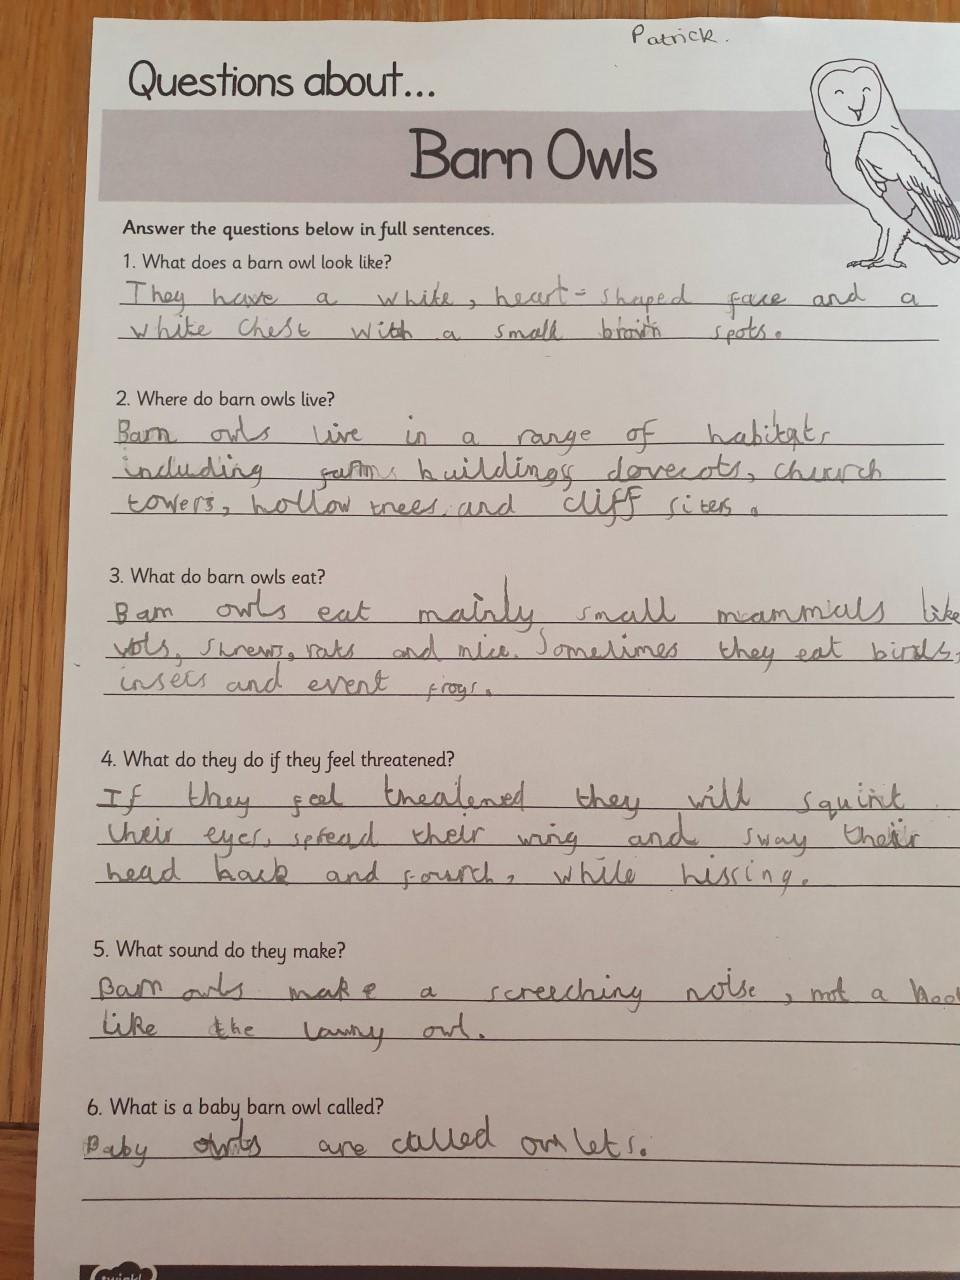 Patrick.
Questions about...
Barn Owls
Answer the questions below in full sentences.
1. What does a barn owl look like?
They have a white, heart-shaped face and a
white chest with a small brown spots.
2. Where do barn owls live?
Barn owls live in a range of habitats
including farms buildings dovecots, church
towers, hollow trees and cliff sites.
3. What do barn owls eat?
Barn owls eat mainly small mammials like
vols, shrews, rats and mice. Sometimes they eat birds,
insecs and event frogs.
4. What do they do if they feel threatened?
If they feel threatened they will squint
their eyes, spread their wing and sway their
head back and fourch, while hissing.
5. What sound do they make?
Barn owls make a screeching noise, not a hoo
like the tawny owl.
6. What is a baby barn owl called?
Baby owls are called owlets.
twinkl